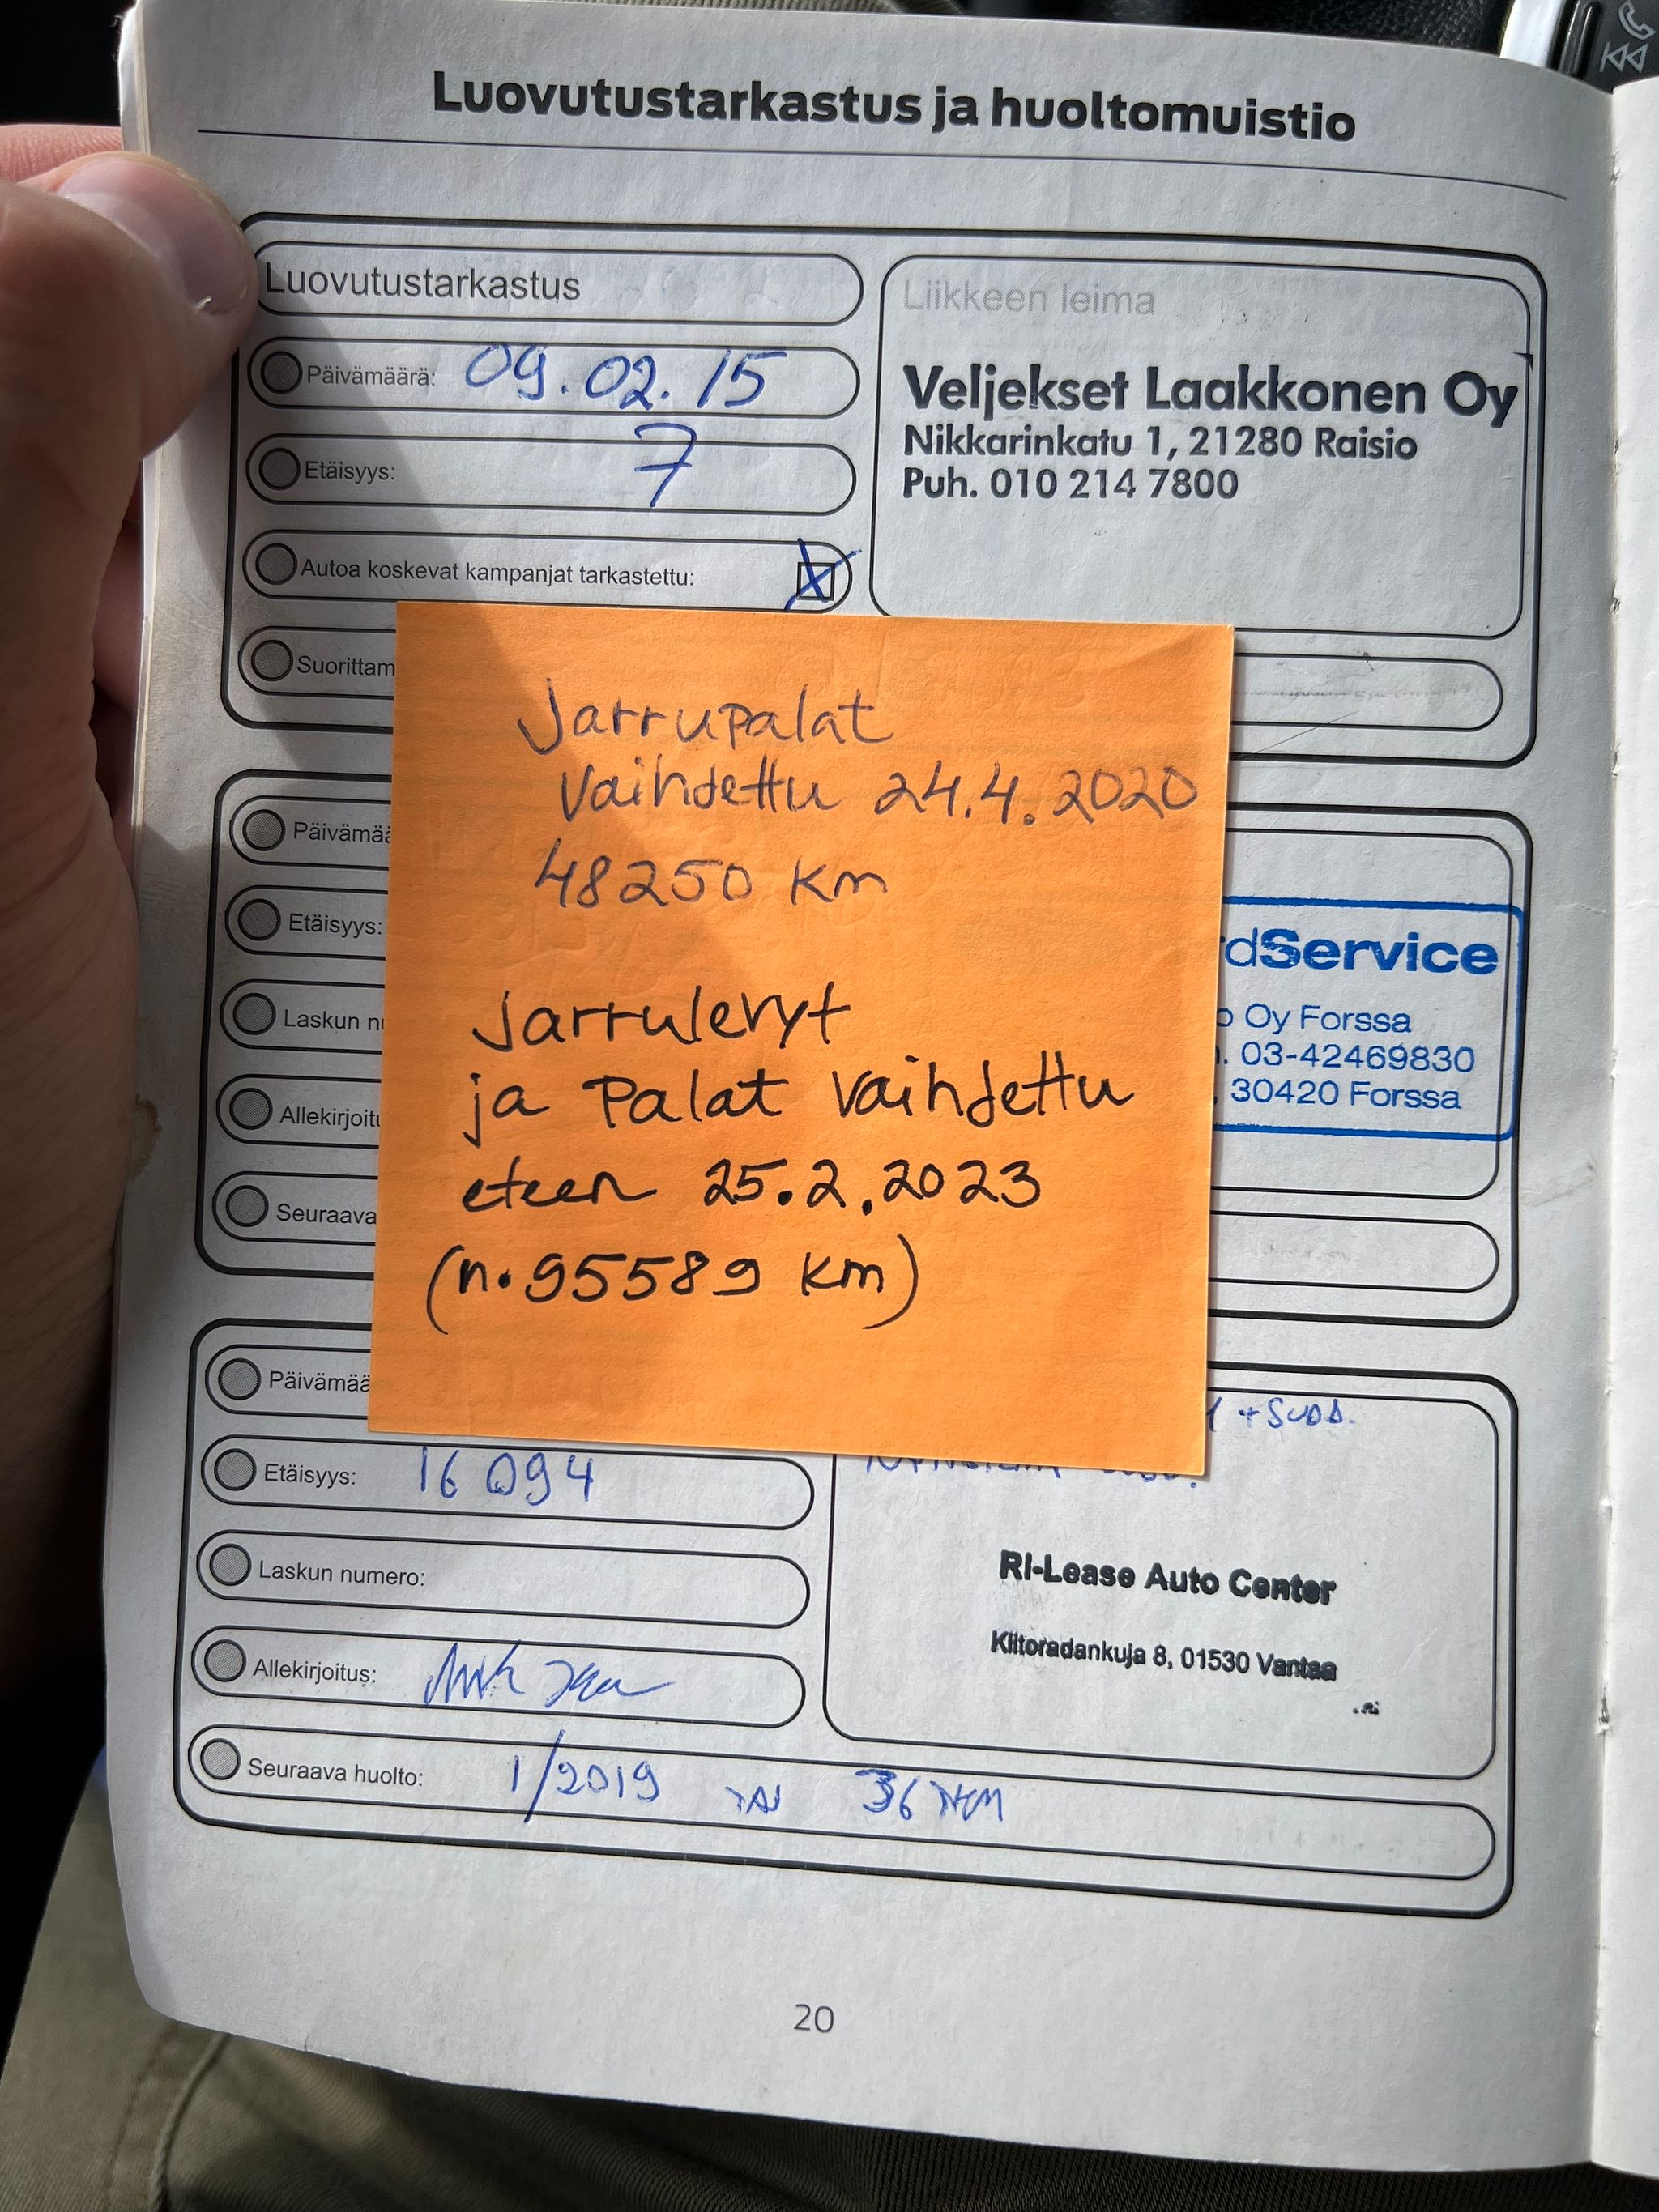 Luovutustarkastus ja huoltomuistio
Luovutustarkastus
Päivämäärä: 09.02.15
Etäisyys: 7
Autoa koskevat kampanjat tarkastettu: X
Suorittam
Liikkeen leima
Veljekset Laakkonen Oy
Nikkarinkatu 1, 21280 Raisio
Puh. 010 214 7800
Jarrupalat
vaihdettu 24.4.2020
48250 km
Jarrulevyt
ja Palat vaihdettu
eteen 25.2.2023
(n.95589 km)
Päivämää
Etäisyys:
Laskun n
Allekirjoitu
Seuraava
dService
Oy Forssa
. 03-42469830
30420 Forssa
Päivämää
Etäisyys: 16 094
Laskun numero:
Allekirjoitus:
Seuraava huolto: 1/2019 TAI 36 TKM
RI-Lease Auto Center
Kiitoradankuja 8, 01530 Vantaa
20